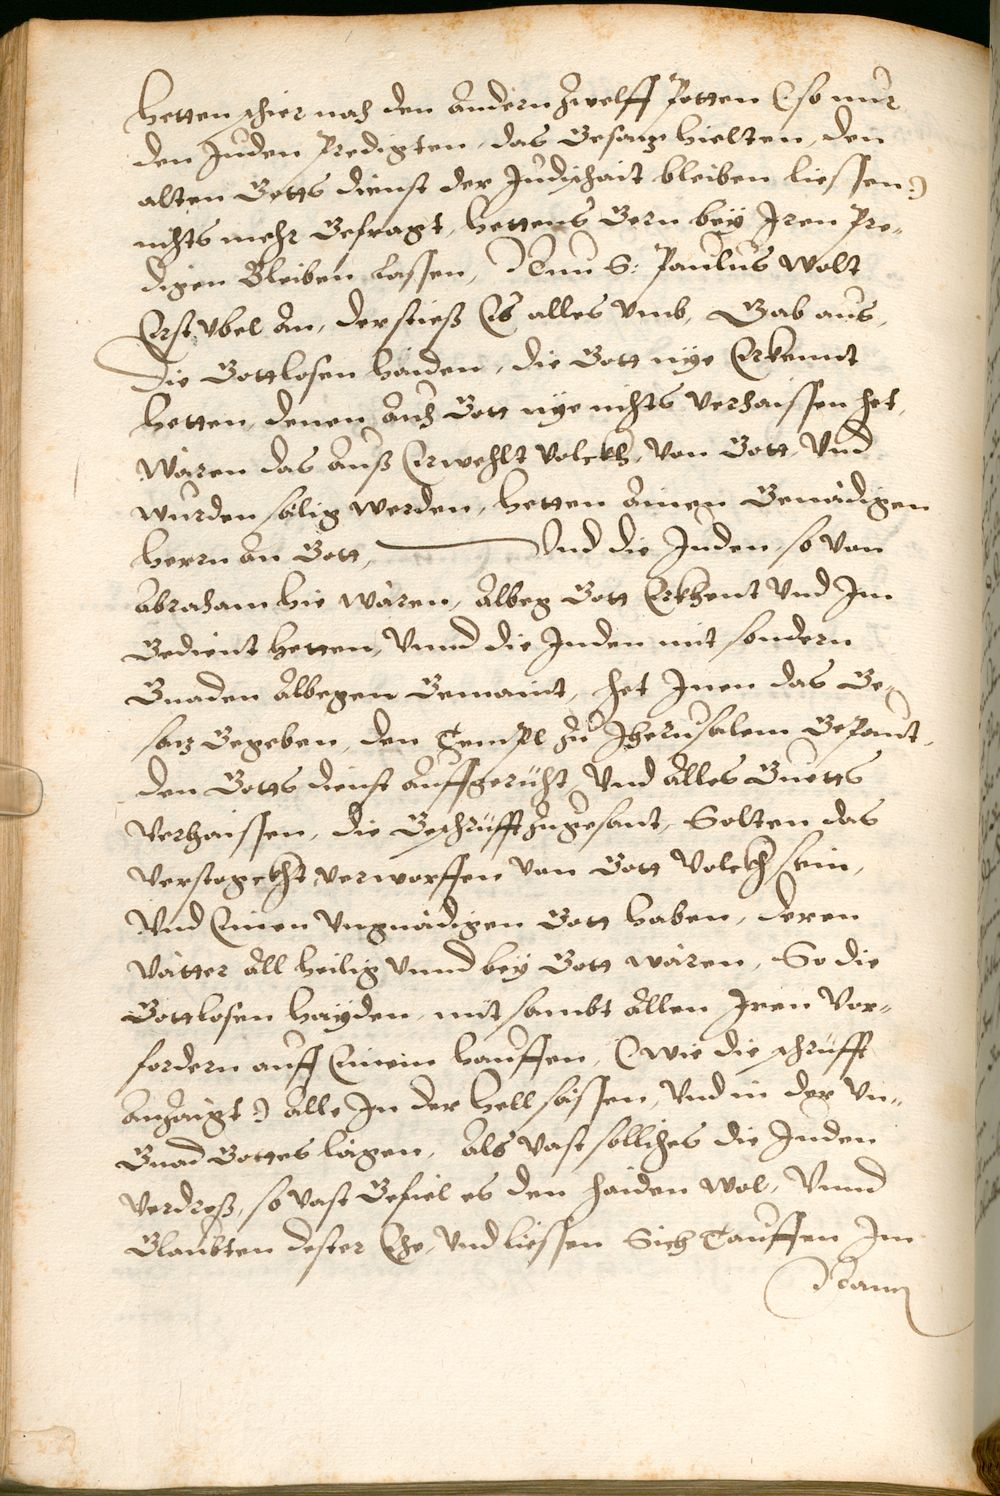 hetten schier nach den andern zwelff Potten (: so nur
den Juden Predigten, das Gesaz hielten, den
alten Gotts dienst der Judischait bleiben liessen :)
nichts mehr Gefragt, hettens Gern bey Jren Pre-
digen Bleiben Lassen, Nun S: Paulus wolt
Erst vbel An, der stiess Es alles vmb, Gab aus,
Die Gottlosen Haiden, die Gott nye Erkennt
hetten, denen Auch Gott nye nichts verhaissen het,
wären das Auss Erwehlt volckh, von Gott, Vnd
wurden sälig werden, hetten Ainen Genädigen
herrn An Gott, Vnd die Juden, so von
Abraham hie wären, Albeg Gott Erkhent Vnd Jm
Gedient hetten, Vnnd die Juden mit sondern
Gnaden Albegen Gemaint, het Jnen das Ge-
saz Gegeben, den Tempel zu Jherusalem Gepaut,
den Gotts dienst auffgericht, Vnd Alles Guetts
Verhaissen, die Geschrüfft zugesant, Solten das
verstogckht verworffen von Gott Volckh sein,
Vnd Einen Vngnädigen Gott haben, deren
Vätter All heilig Vnnd bey Gott wären, So die
Gottlosen hayden, mit sambt Allen Jren Vor-
fordern auff Einem hauffen, (: wie die schrüfft
Anzaigt :) Alle Jn der hell sässen, Vnd in der Vn-
Gnad Gottes lägen, Als vast sollches die Juden
verdross, so vast Gefiel es den haiden wol, Vnnd
Glaubten dester Ehe, Vnd liessen Sich Tauffen Jm
Nam